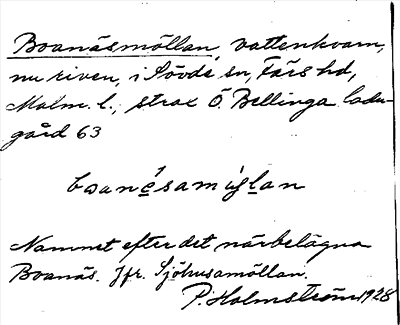 Boanäsmöllan, vattenkvarn,
nu riven, i Sövde sn, Färs hd,
Malm. l., strax Ö. Bellinga ladu-
gård 63
Namnet efter det närbelägna
Boanäs. Jfr. Sjöhusamöllan.
P. Holmström 1928